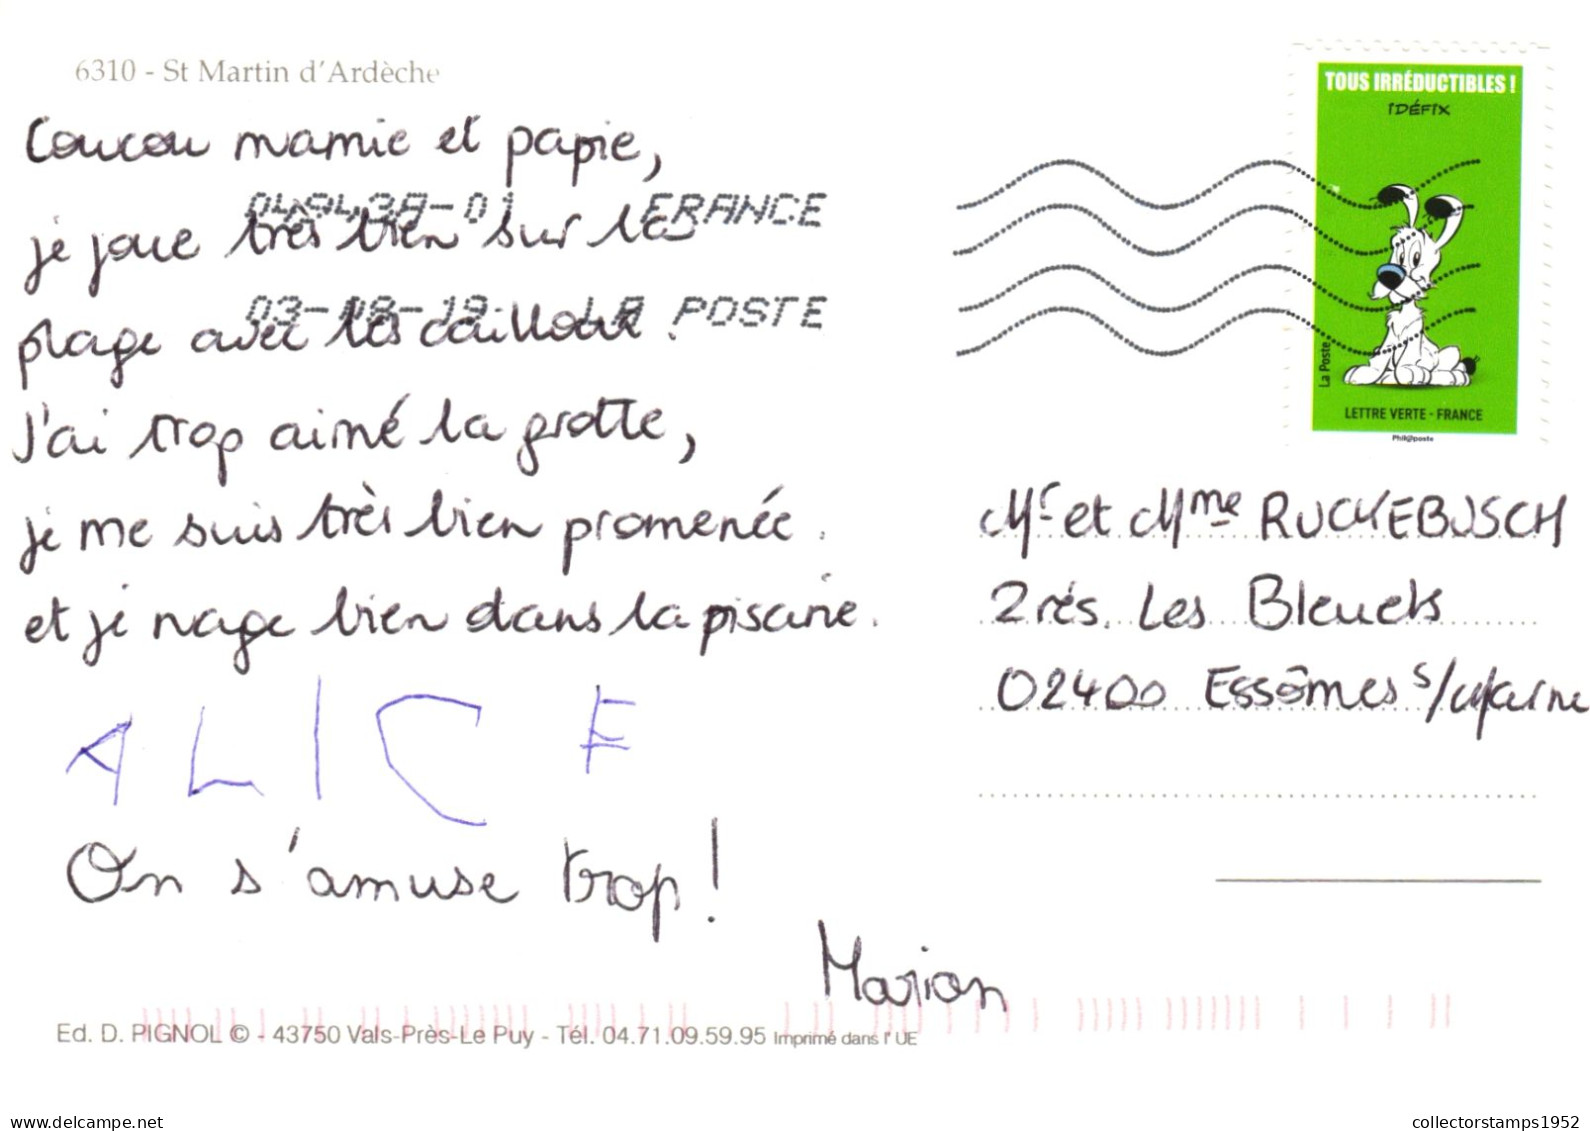 6310 - St Martin d'Ardèche
TOUS IRRÉDUCTIBLES !
IDÉFIX
La Poste
LETTRE VERTE - FRANCE
Phil@poste
FRANCE
LA POSTE
Coucou mamie et papie,
je joue très bien sur les
plage avec les cailloux.
J'ai trop aimé la grotte,
je me suis très bien promenée.
et je nage bien dans la piscine.
ALICE
On s'amuse trop !
Marion
Mr et Mme RUCKEBUSCH
2 rés. Les Bleuets
02400 Essômes s/Marne
Ed. D. PIGNOL © - 43750 Vals-Près-Le Puy - Tél. 04.71.09.59.95 Imprimé dans l' UE
delcampe.net
collectorstamps1952